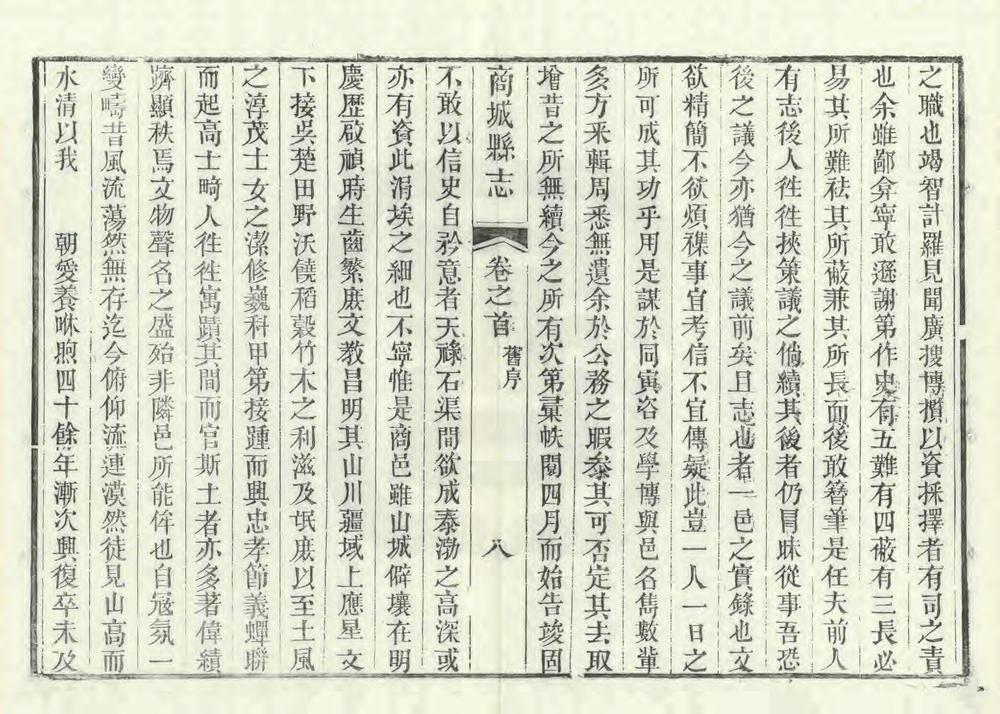 之職也竭智計羅見聞廣搜博攬以資採擇者有司之責
也余雖鄙弇寧敢遜謝第作史有五難有四蔽有三長必
易其所難祛其所蔽兼其所長而後敢簪筆是任夫前人
有志後人徃徃挾策議之倘續其後者仍冐昧從事吾恐
後之議今亦猶今之議前矣且志也者一邑之實錄也文
欲精簡不欲煩襍事宜考信不宜傳疑此豈一人一日之
所可成其功乎用是謀於同寅咨及學博與邑名雋數輩
多方采輯周悉無遺余於公務之暇叅其可否定其去取
增昔之所無續今之所有次第彙帙閱四月而始告竣固
商城縣志 卷之首 舊序 八
不敢以信史自矜意者天祿石渠間欲成泰渤之高深或
亦有資此涓埃之細也不寧惟是商邑雖山城僻壤在明
慶歷啟禎時生齒繁庶文教昌明其山川疆域上應星文
下接吳楚田野沃饒稻穀竹木之利滋及氓庶以至土風
之淳茂士女之潔修巍科甲第接踵而興忠孝節義蟬聯
而起高士畸人徃徃寓蹟其間而官斯土者亦多著偉績
躋顯秩焉文物聲名之盛殆非隣邑所能侔也自冦氛一
變疇昔風流蕩然無存迄今俯仰流連漠然徒見山高而
水清以我 朝愛養咻煦四十餘年漸次興復卒未及